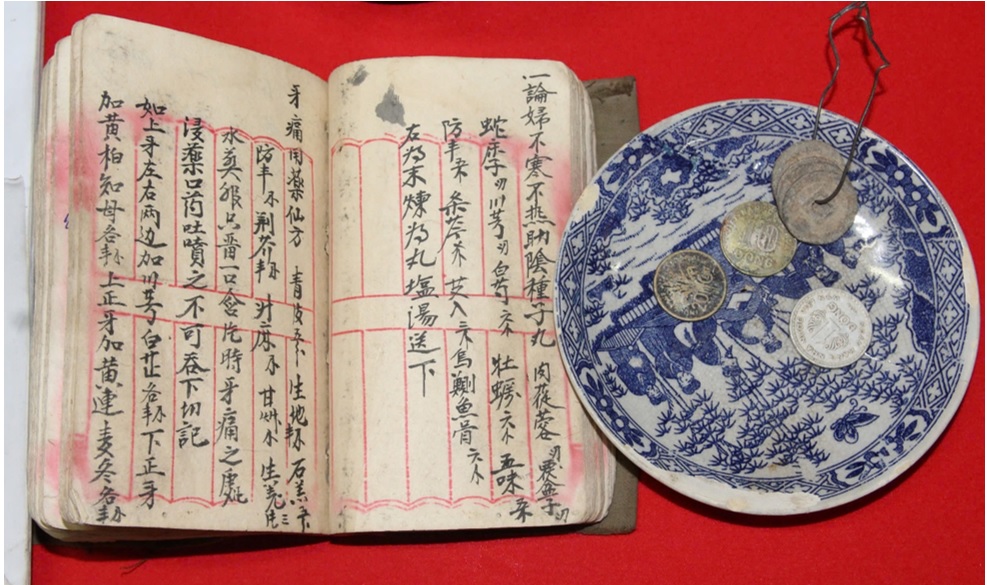 一論婦不寒不热助陰種子丸 肉蓯蓉 覆盆子
蛇床子 川芎 白芍六分 牡蠣六分 五味
防丰 条芩 艾入六分 烏鰂魚骨六分
右為末煉為丸塩湯送下
牙痛用藥仙方 青皮 生地 石羔
防丰 荆芥 升麻 甘艸 生羌三片
水煎服只番一口含片時牙痛之處
浸藥口药吐噴之不可吞下切記
如上牙左右两边加川芎白芷各 下正牙
加黄柏知母各 上正牙加黄連麦冬各